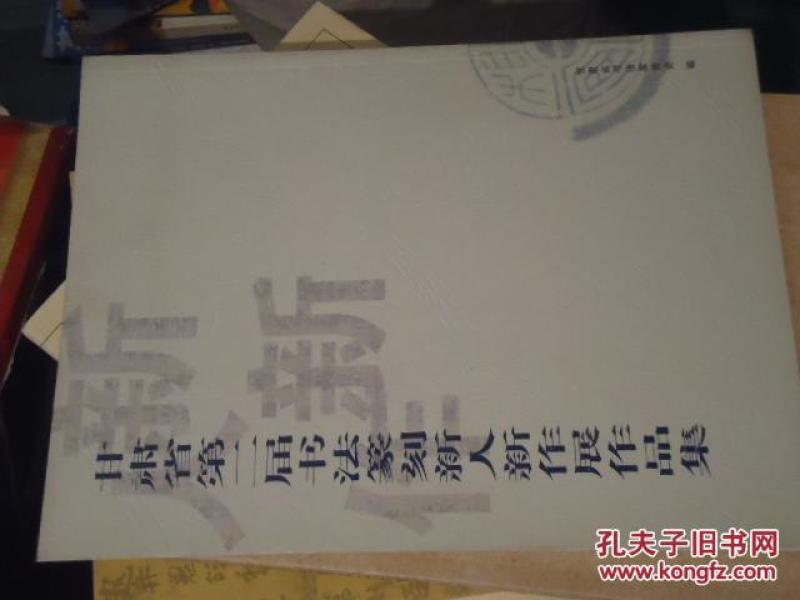 甘肃省书法家协会 编
新人
新作
甘肃省第二届书法篆刻新人新作展作品集
孔夫子旧书网
www.kongfz.com